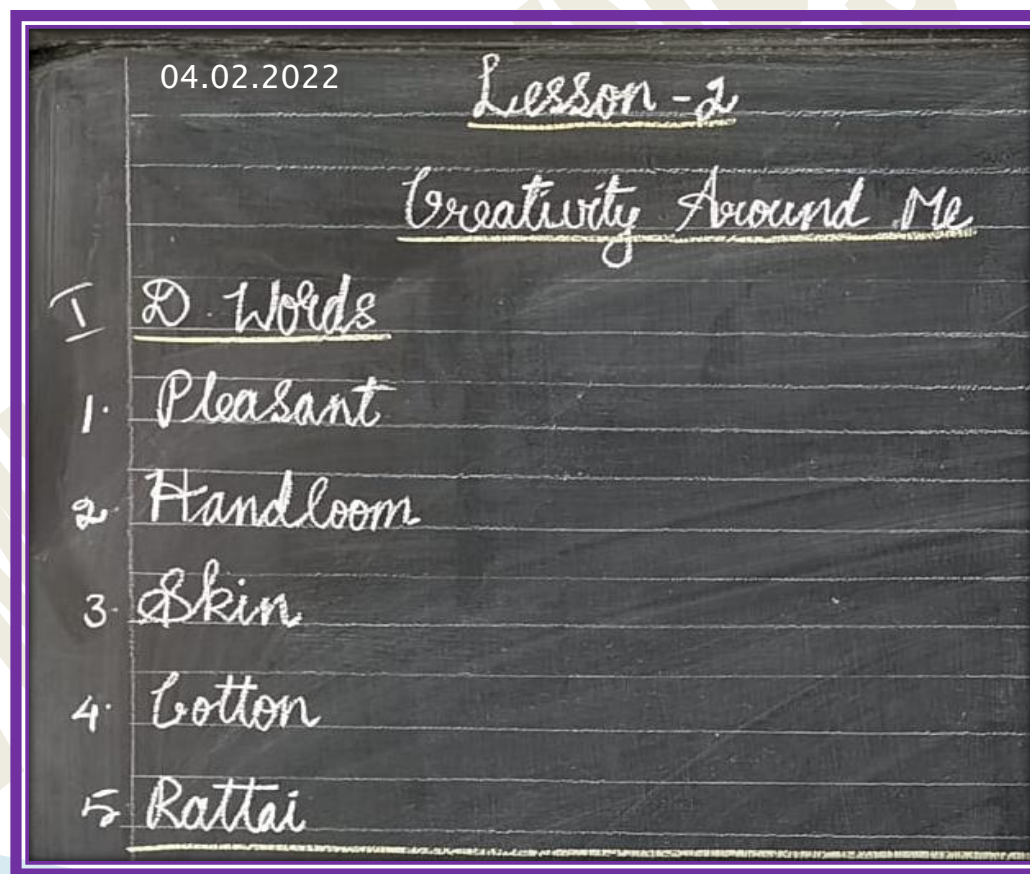 04.02.2022
Lesson - 2
Creativity Around Me
I D. Words
1. Pleasant
2. Handloom
3. Skin
4. Cotton
5. Rattai